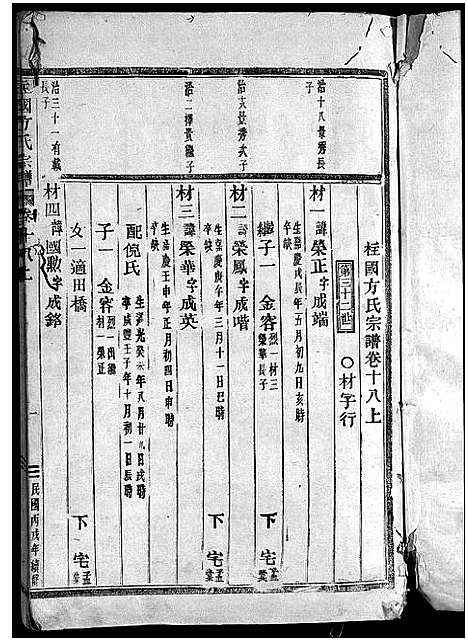 桂國方氏宗譜卷十八上
第三十二世
○材字行
治十八景秀長子
材一諱榮正字成端
生嘉慶戊辰年五月初九日亥時
歿缺
下宅孟黨
繼子一金容烈一材三榮華長子
治亥景秀次子
材二諱榮鳳字成喈
生嘉慶庚午年三月十一日巳時
歿缺
下宅孟黨
治二擇貴繼子
材三諱榮華字成英
生嘉慶壬申年正月初四日申時
歿缺
配倪氏
生道光癸未年八月廿九日戌時
卒咸豐壬子年十月初一日辰時
子一金容烈一出繼材一榮正
女一適田橋
下宅孟黨
治三十一有載長子
材四諱國勲字成銘
國方氏宗譜
卷十八上
一
民國丙戌年續修